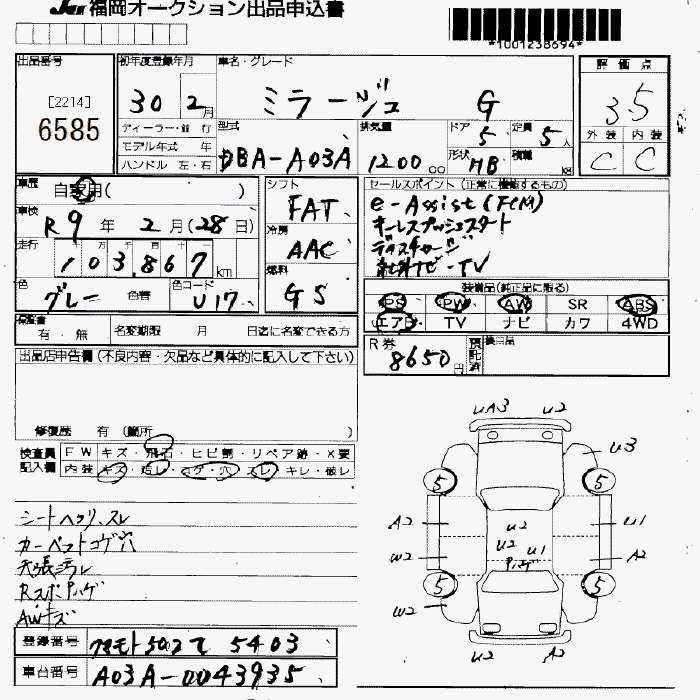 福岡オークション出品申込書
*1001238694*
出品番号
[2214]
6585
初年度登録年月
30 2月
ディーラー・並行
モデル年式 年
ハンドル 左・右
車名・グレード
ミラージュ G
型式
DBA-A03A
排気量
1200 cc
ドア
5
定員
5人
形状
HB
積載
kg
評価点
3.5
外装 内装
C C
車歴
自家用( )
車検
R9年 2月(28日)
走行
103,867 km
色
グレー
色替
色コード
U17
シフト
FAT
冷房
AAC
燃料
GS
セールスポイント(正常に機能するもの)
e-Assist(FCM)
キーレスプッシュスタート
ディスチャージ
社外ナビ-TV
装備品(純正品に限る)
PS PW AW SR ABS
エアB TV ナビ カワ 4WD
保証書
有・無
名変期限 月 日迄に名変できる方
R券
8650円
預託済
出品店申告欄(不良内容・欠品など具体的に記入して下さい)
修復歴 有(箇所 )
検査員記入欄
FW キズ・飛石・ヒビ割・リペア跡・X要
内装 キズ・汚レ・コゲ・穴・スレ・キレ・破レ
シートヘタリ、スレ
カーペットコゲ穴
天張汚レ
Rスポハゲ
AWキズ
登録番号
5403
車台番号
A03A-0043935
UA3 U2
U3
5 5
A2 U1
U2
U2 U1
ハゲ
W2 A2
5 5
W2
U2 A2